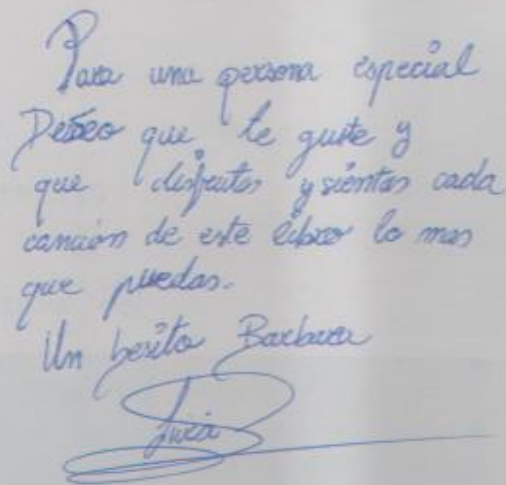 Para una persona especial
Deseo que te guste y
que disfrutes y sientas cada
canción de este libro lo mas
que puedas.
Un besito Barbara
Lucía